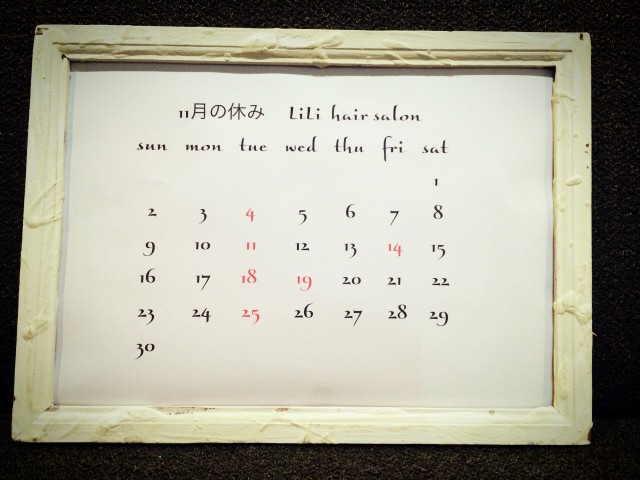 11月の休み LiLi hair salon
sun mon tue wed thu fri sat
1
2 3 4 5 6 7 8
9 10 11 12 13 14 15
16 17 18 19 20 21 22
23 24 25 26 27 28 29
30